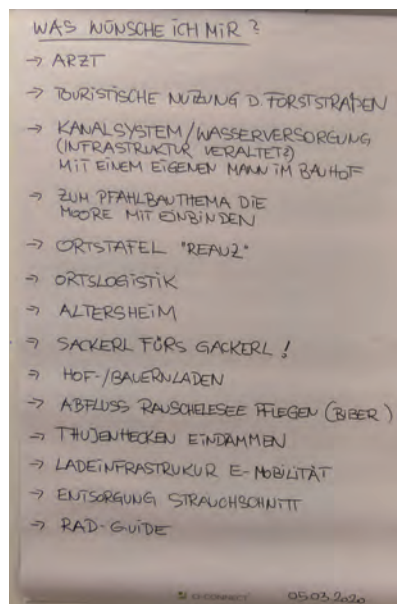 WAS WÜNSCHE ICH MIR?
→ ARZT
→ TOURISTISCHE NUTZUNG D. FORSTSTRAßEN
→ KANALSYSTEM/WASSERVERSORGUNG
(INFRASTRUKTUR VERALTET?)
MIT EINEM EIGENEN MANN IM BAUHOF
→ ZUM PFAHLBAUTHEMA DIE
MOORE MIT EINBINDEN
→ ORTSTAFEL "REAUZ"
→ ORTSLOGISTIK
→ ALTERSHEIM
→ SACKERL FÜRS GACKERL!
→ HOF-/BAUERNLADEN
→ ABFLUSS RAUSCHELESEE PFLEGEN (BIBER)
→ THUJENHECKEN EINDÄMMEN
→ LADEINFRASTRUKUR E-MOBILITÄT
→ ENTSORGUNG STRAUCHSCHNITT
→ RAD-GUIDE
Q-CONNECT 05.03.2020